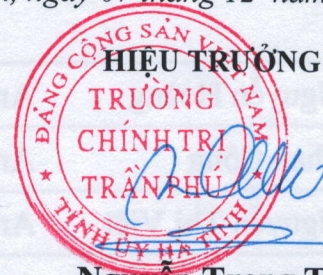 ngày 07 tháng 12 năm
HIỆU TRƯỞNG
ĐẢNG CỘNG SẢN VIỆT NAM
TRƯỜNG
CHÍNH TRỊ
TRẦN PHÚ
TỈNH ỦY HÀ TĨNH
Nguyễn Trọng T